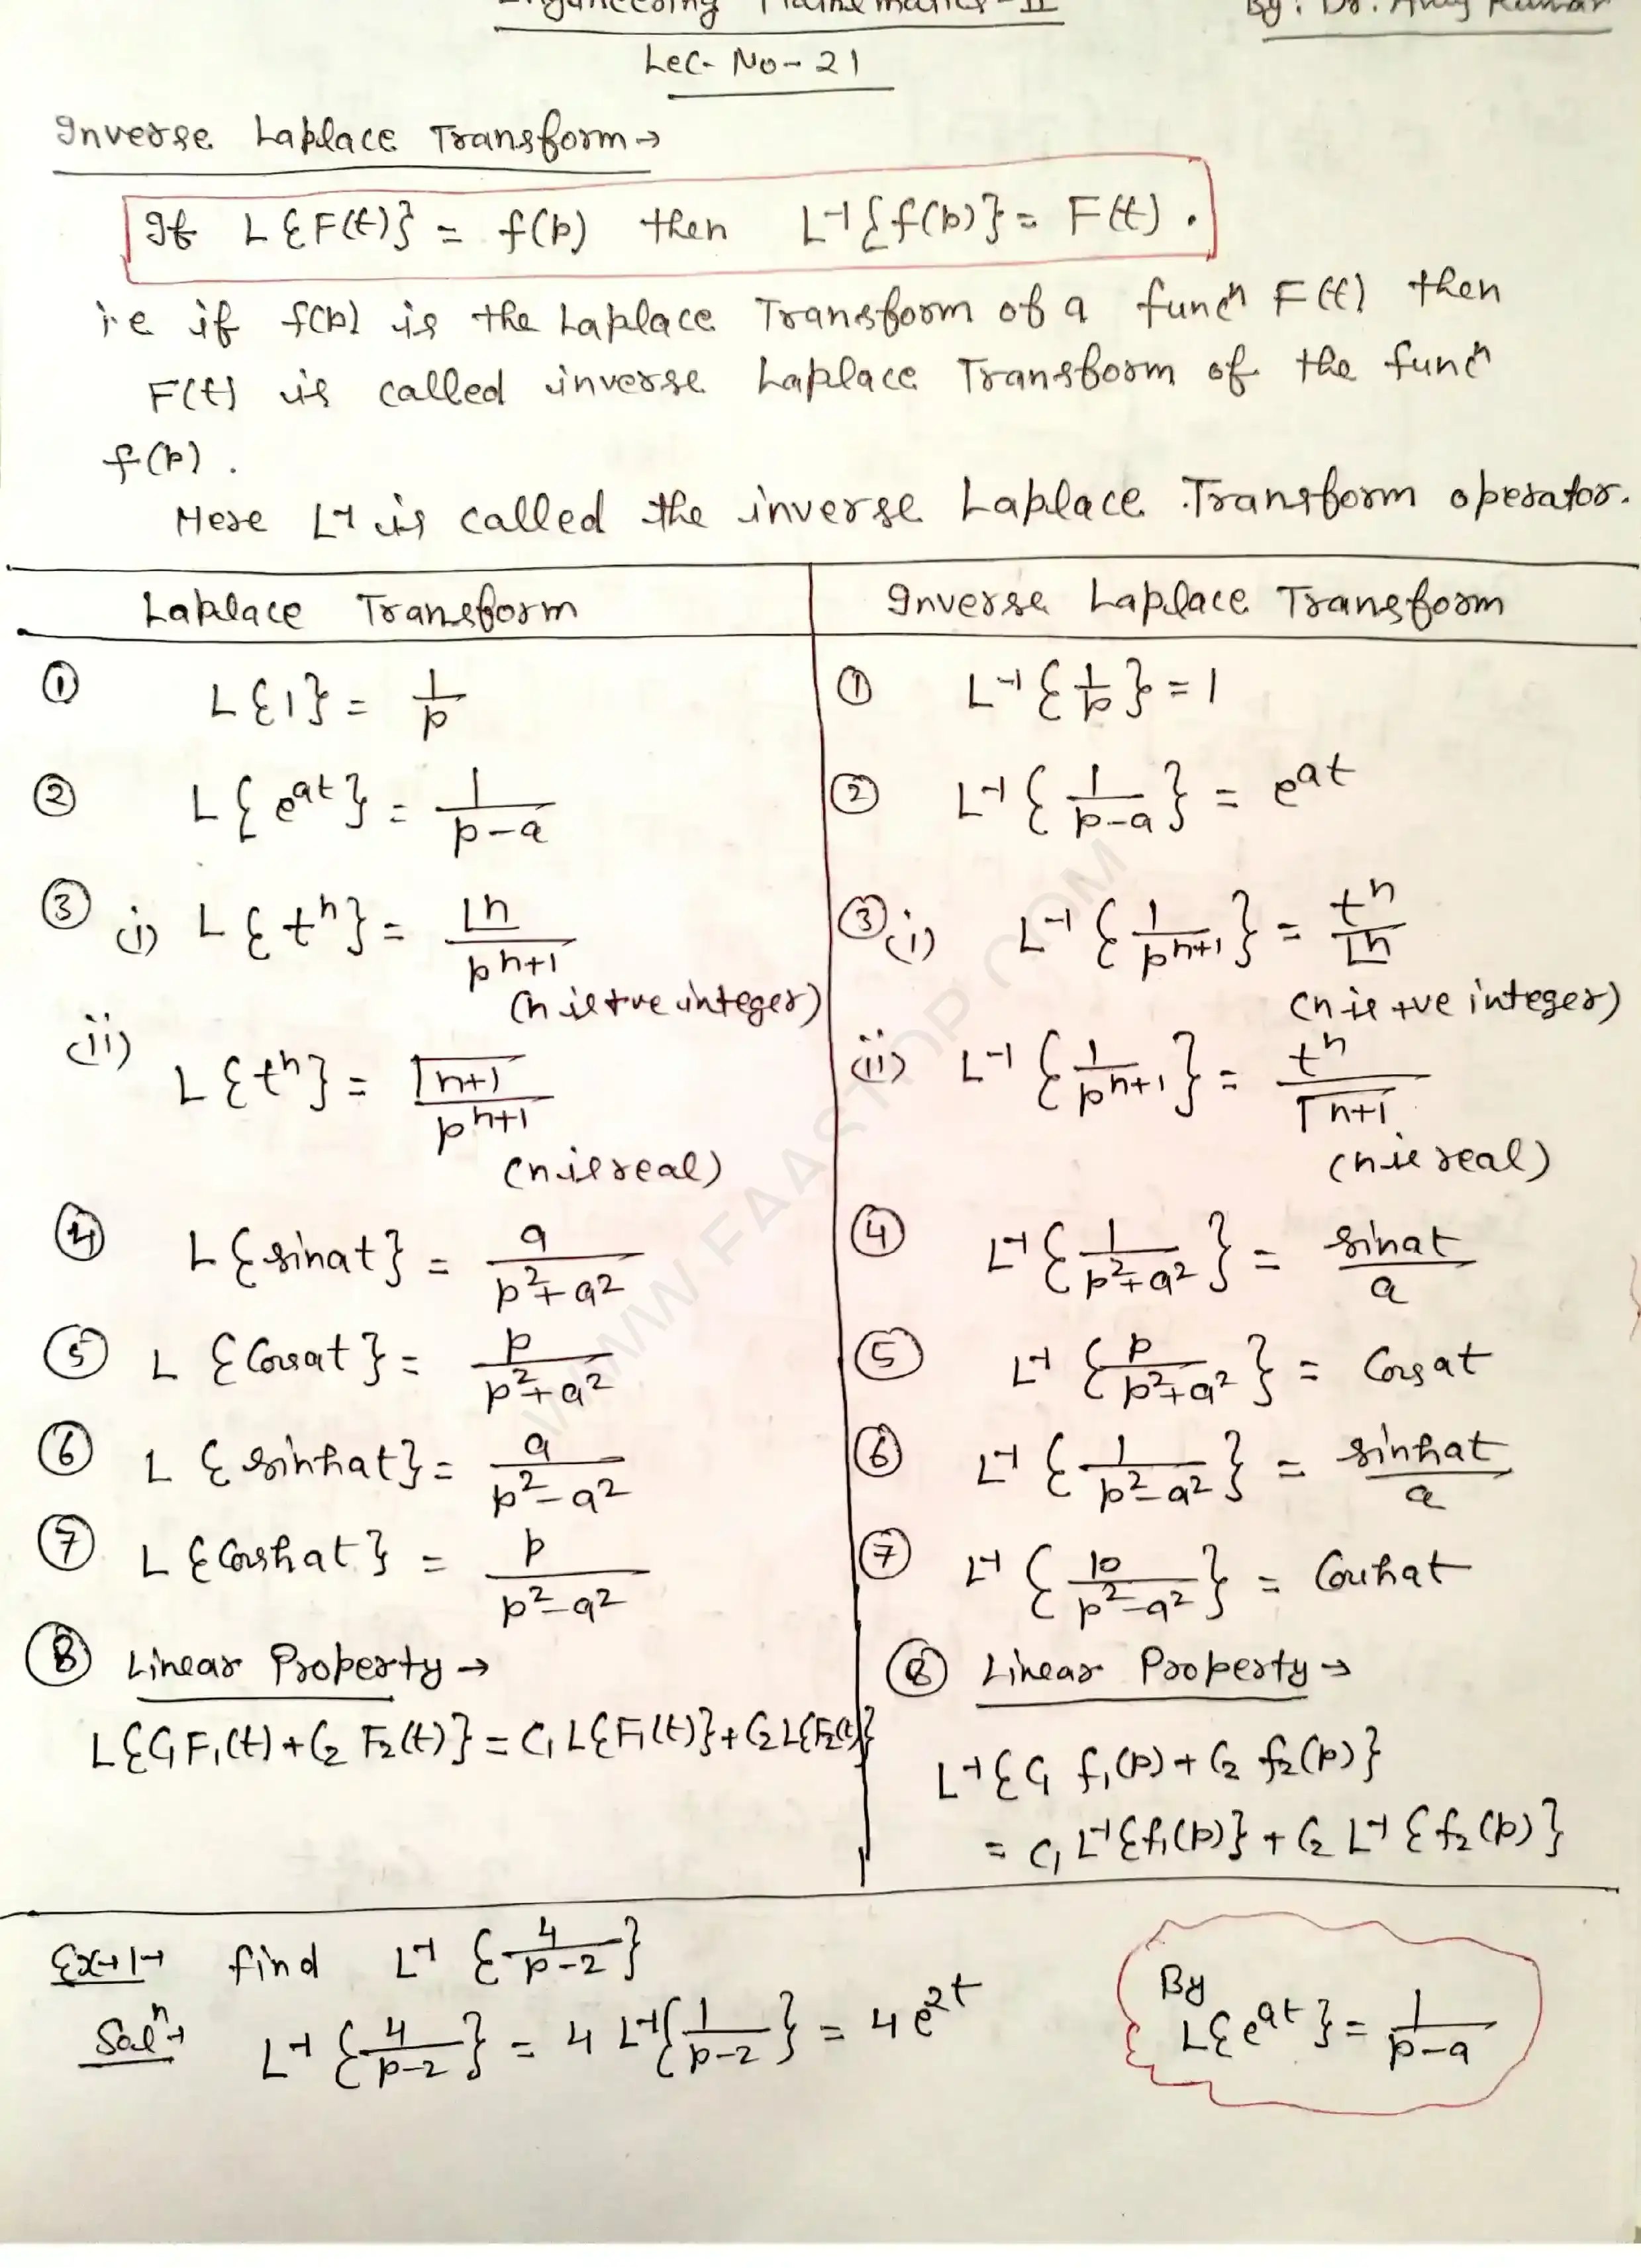 Engineering Mathematics-II
By: Dr. Anuj Kumar
Lec- No-21
Inverse Laplace Transform→
If L{F(t)} = f(p) then L⁻¹{f(p)} = F(t).
i.e if f(p) is the Laplace Transform of a funcⁿ F(t) then
F(t) is called inverse Laplace Transform of the funcⁿ
f(p).
Here L⁻¹ is called the inverse Laplace Transform operator.
Laplace Transform
Inverse Laplace Transform
① L{1} = 1/p
① L⁻¹{1/p} = 1
② L{e^at} = 1/(p-a)
② L⁻¹{1/(p-a)} = e^at
③ (i) L{tⁿ} = ⌊n/p^(n+1)
(n is +ve integer)
③ (i) L⁻¹{1/p^(n+1)} = tⁿ/⌊n
(n is +ve integer)
(ii) L{tⁿ} = Γn+1/p^(n+1)
(n is real)
(ii) L⁻¹{1/p^(n+1)} = tⁿ/Γn+1
(n is real)
④ L{sinat} = a/(p²+a²)
④ L⁻¹{1/(p²+a²)} = sinat/a
⑤ L{Cosat} = p/(p²+a²)
⑤ L⁻¹{p/(p²+a²)} = Cosat
⑥ L{sinhat} = a/(p²-a²)
⑥ L⁻¹{1/(p²-a²)} = sinhat/a
⑦ L{Coshat} = p/(p²-a²)
⑦ L⁻¹{p/(p²-a²)} = Coshat
⑧ Linear Property→
L{C₁F₁(t)+C₂F₂(t)} = C₁L{F₁(t)}+C₂L{F₂(t)}
⑧ Linear Property→
L⁻¹{C₁ f₁(p)+C₂ f₂(p)}
= C₁ L⁻¹{f₁(p)}+C₂ L⁻¹{f₂(p)}
Ex→1→ find L⁻¹{4/(p-2)}
Solⁿ→ L⁻¹{4/(p-2)} = 4 L⁻¹{1/(p-2)} = 4e^2t
By
L{e^at} = 1/(p-a)
WWW.FAASTOP.COM